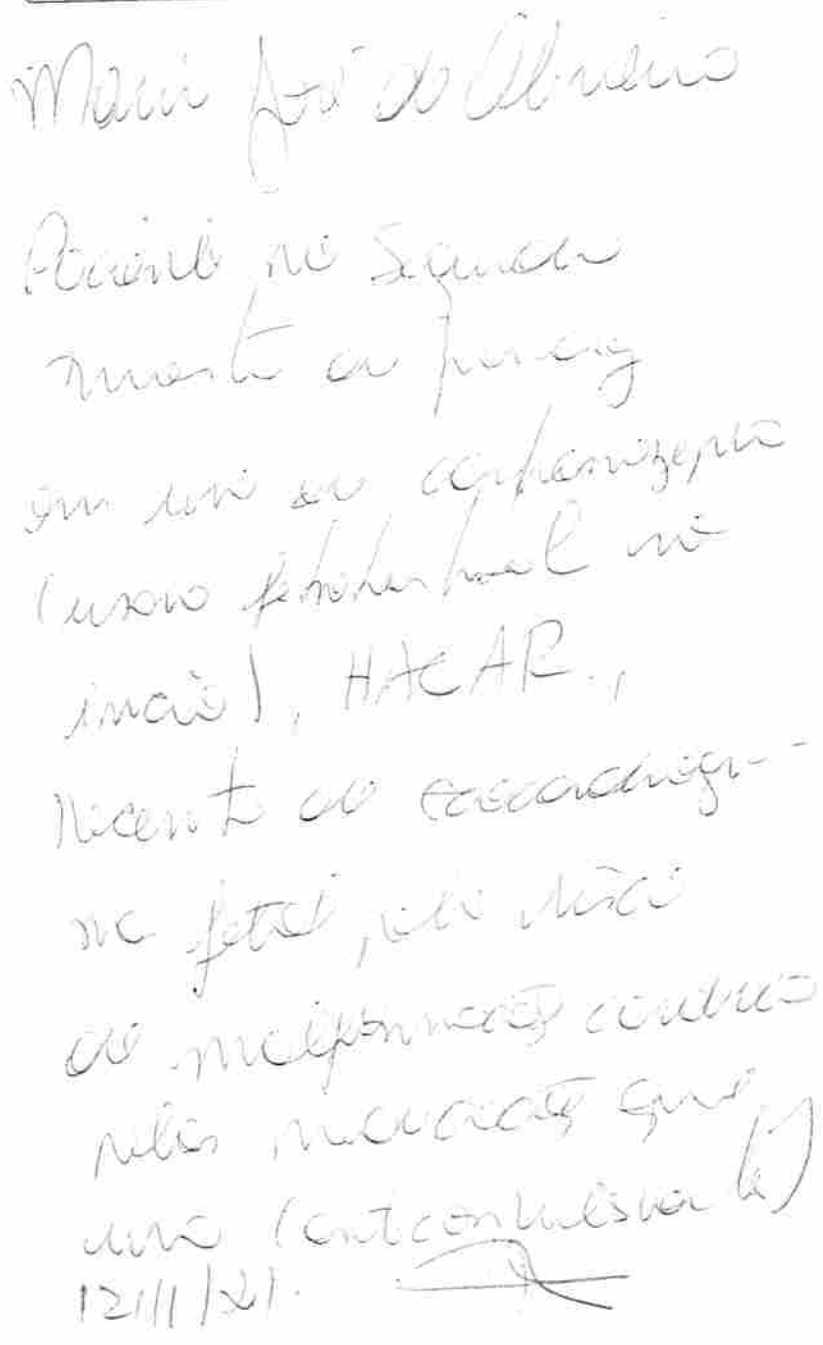 Maria José de Oliveira
Paciente no segundo
trimestre de gravidez
em uso de carbamazepina
(usou fenobarbital no
início),
necessita de ecocardiogra-
ma fetal, pelo risco
de malformação cardíaca
pelas medicações que
usa (anticonvulsivante)
12/1/21.